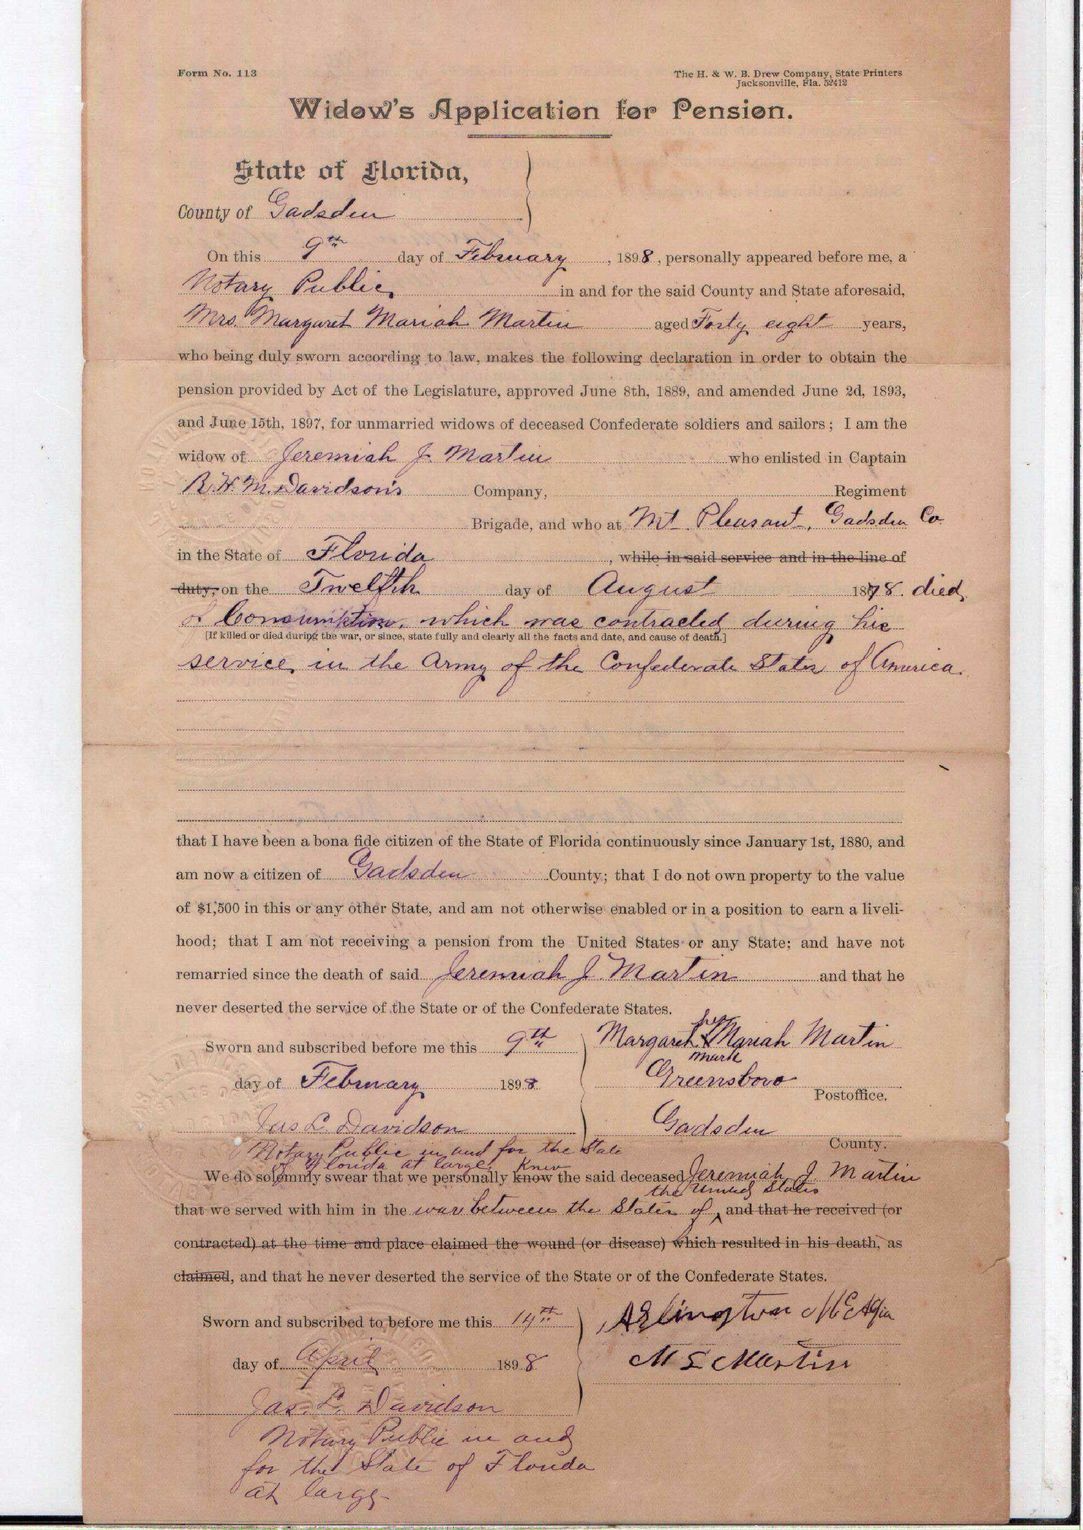 Form No. 113
The H. & W. B. Drew Company, State Printers
Jacksonville, Fla. 52412
Widow's Application for Pension.
State of Florida,
County of Gadsden
On this 9th day of February, 1898, personally appeared before me, a
Notary Public in and for the said County and State aforesaid,
Mrs. Margaret Mariah Martin aged Forty eight years,
who being duly sworn according to law, makes the following declaration in order to obtain the
pension provided by Act of the Legislature, approved June 8th, 1889, and amended June 2d, 1893,
and June 15th, 1897, for unmarried widows of deceased Confederate soldiers and sailors; I am the
widow of Jeremiah J. Martin who enlisted in Captain
R. H. M. Davidson's Company, Regiment
Brigade, and who at Mt. Pleasant, Gadsden Co.
in the State of Florida, while in said service and in the line of
duty, on the Twelfth day of August 1878. died,
of Consumption, which was contracted during his
[If killed or died during the war, or since, state fully and clearly all the facts and date, and cause of death.]
service in the Army of the Confederate States of America.
that I have been a bona fide citizen of the State of Florida continuously since January 1st, 1880, and
am now a citizen of Gadsden County; that I do not own property to the value
of $1,500 in this or any other State, and am not otherwise enabled or in a position to earn a liveli-
hood; that I am not receiving a pension from the United States or any State; and have not
remarried since the death of said Jeremiah J. Martin and that he
never deserted the service of the State or of the Confederate States.
her
Sworn and subscribed before me this 9th Margaret X Mariah Martin
mark
day of February 1898 Greensboro Postoffice.
Jas L. Davidson Gadsden County.
Notary Public in and for the State
of Florida at large. Knew
We do solemnly swear that we personally know the said deceased Jeremiah J. Martin
the United States
that we served with him in the war between the States of and that he received (or
contracted) at the time and place claimed the wound (or disease) which resulted in his death, as
claimed, and that he never deserted the service of the State or of the Confederate States.
Sworn and subscribed to before me this 14th Arlington
day of April 1898 M L Martin
Jas. L. Davidson
Notary Public in and
for the State of Florida
at large.